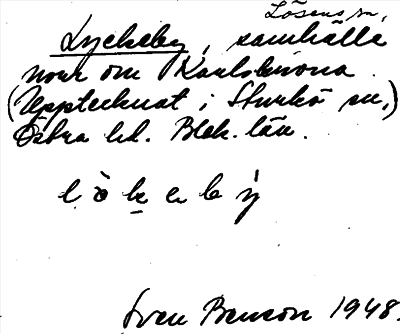 Lösens sn,
Lyckeby, samhälle
norr om Karlskrona.
(Upptecknat i Sturkö sn,)
Östra hd. Blek. län.
lökeby
Sven Benson 1948.